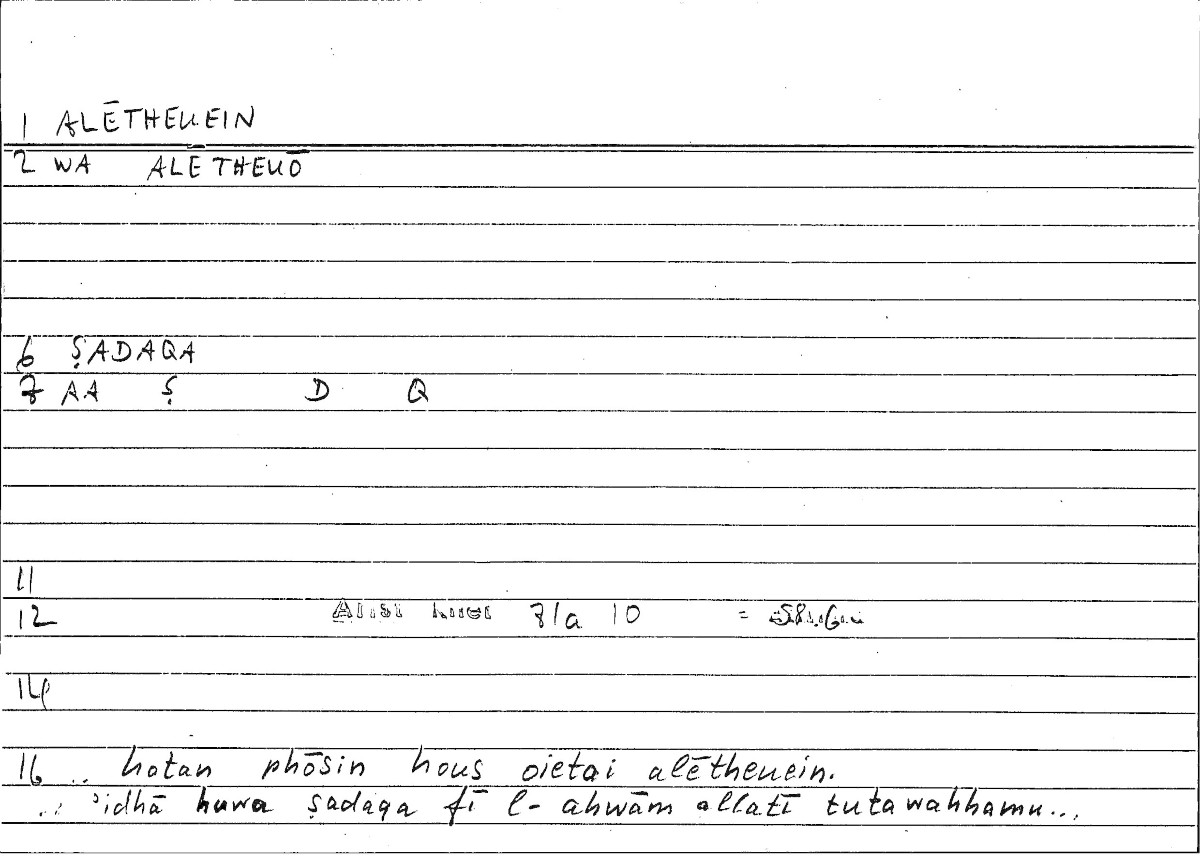 1 ALĒTHEUEIN
2 WA ALĒTHEUŌ
6 ṢADAQA
7 AA Ṣ D Q
11
12 71a 10 =
14
16 .. hotan phōsin hous oietai alētheuein.
... ʾidhā huwa ṣadaqa fī l-ahwām allatī tutawahhamu...